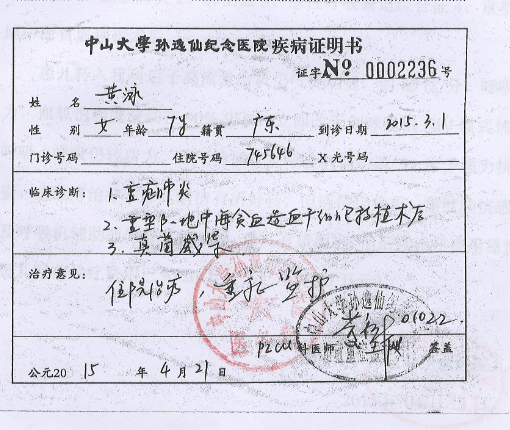 中山大学孙逸仙纪念医院疾病证明书
证字 No 0002236 号
姓 名 黄泳
性 别 女 年龄 7y 籍贯 广东 到诊日期 2015.3.1
门诊号码 住院号码 745646 X光号码
临床诊断: 1. 重症肺炎
2. 重型β-地中海贫血造血干细胞移植术后
3. 真菌感染
治疗意见:
住院治疗,重症监护
PICU 科医师 01022 签盖
公元2015年4月21日